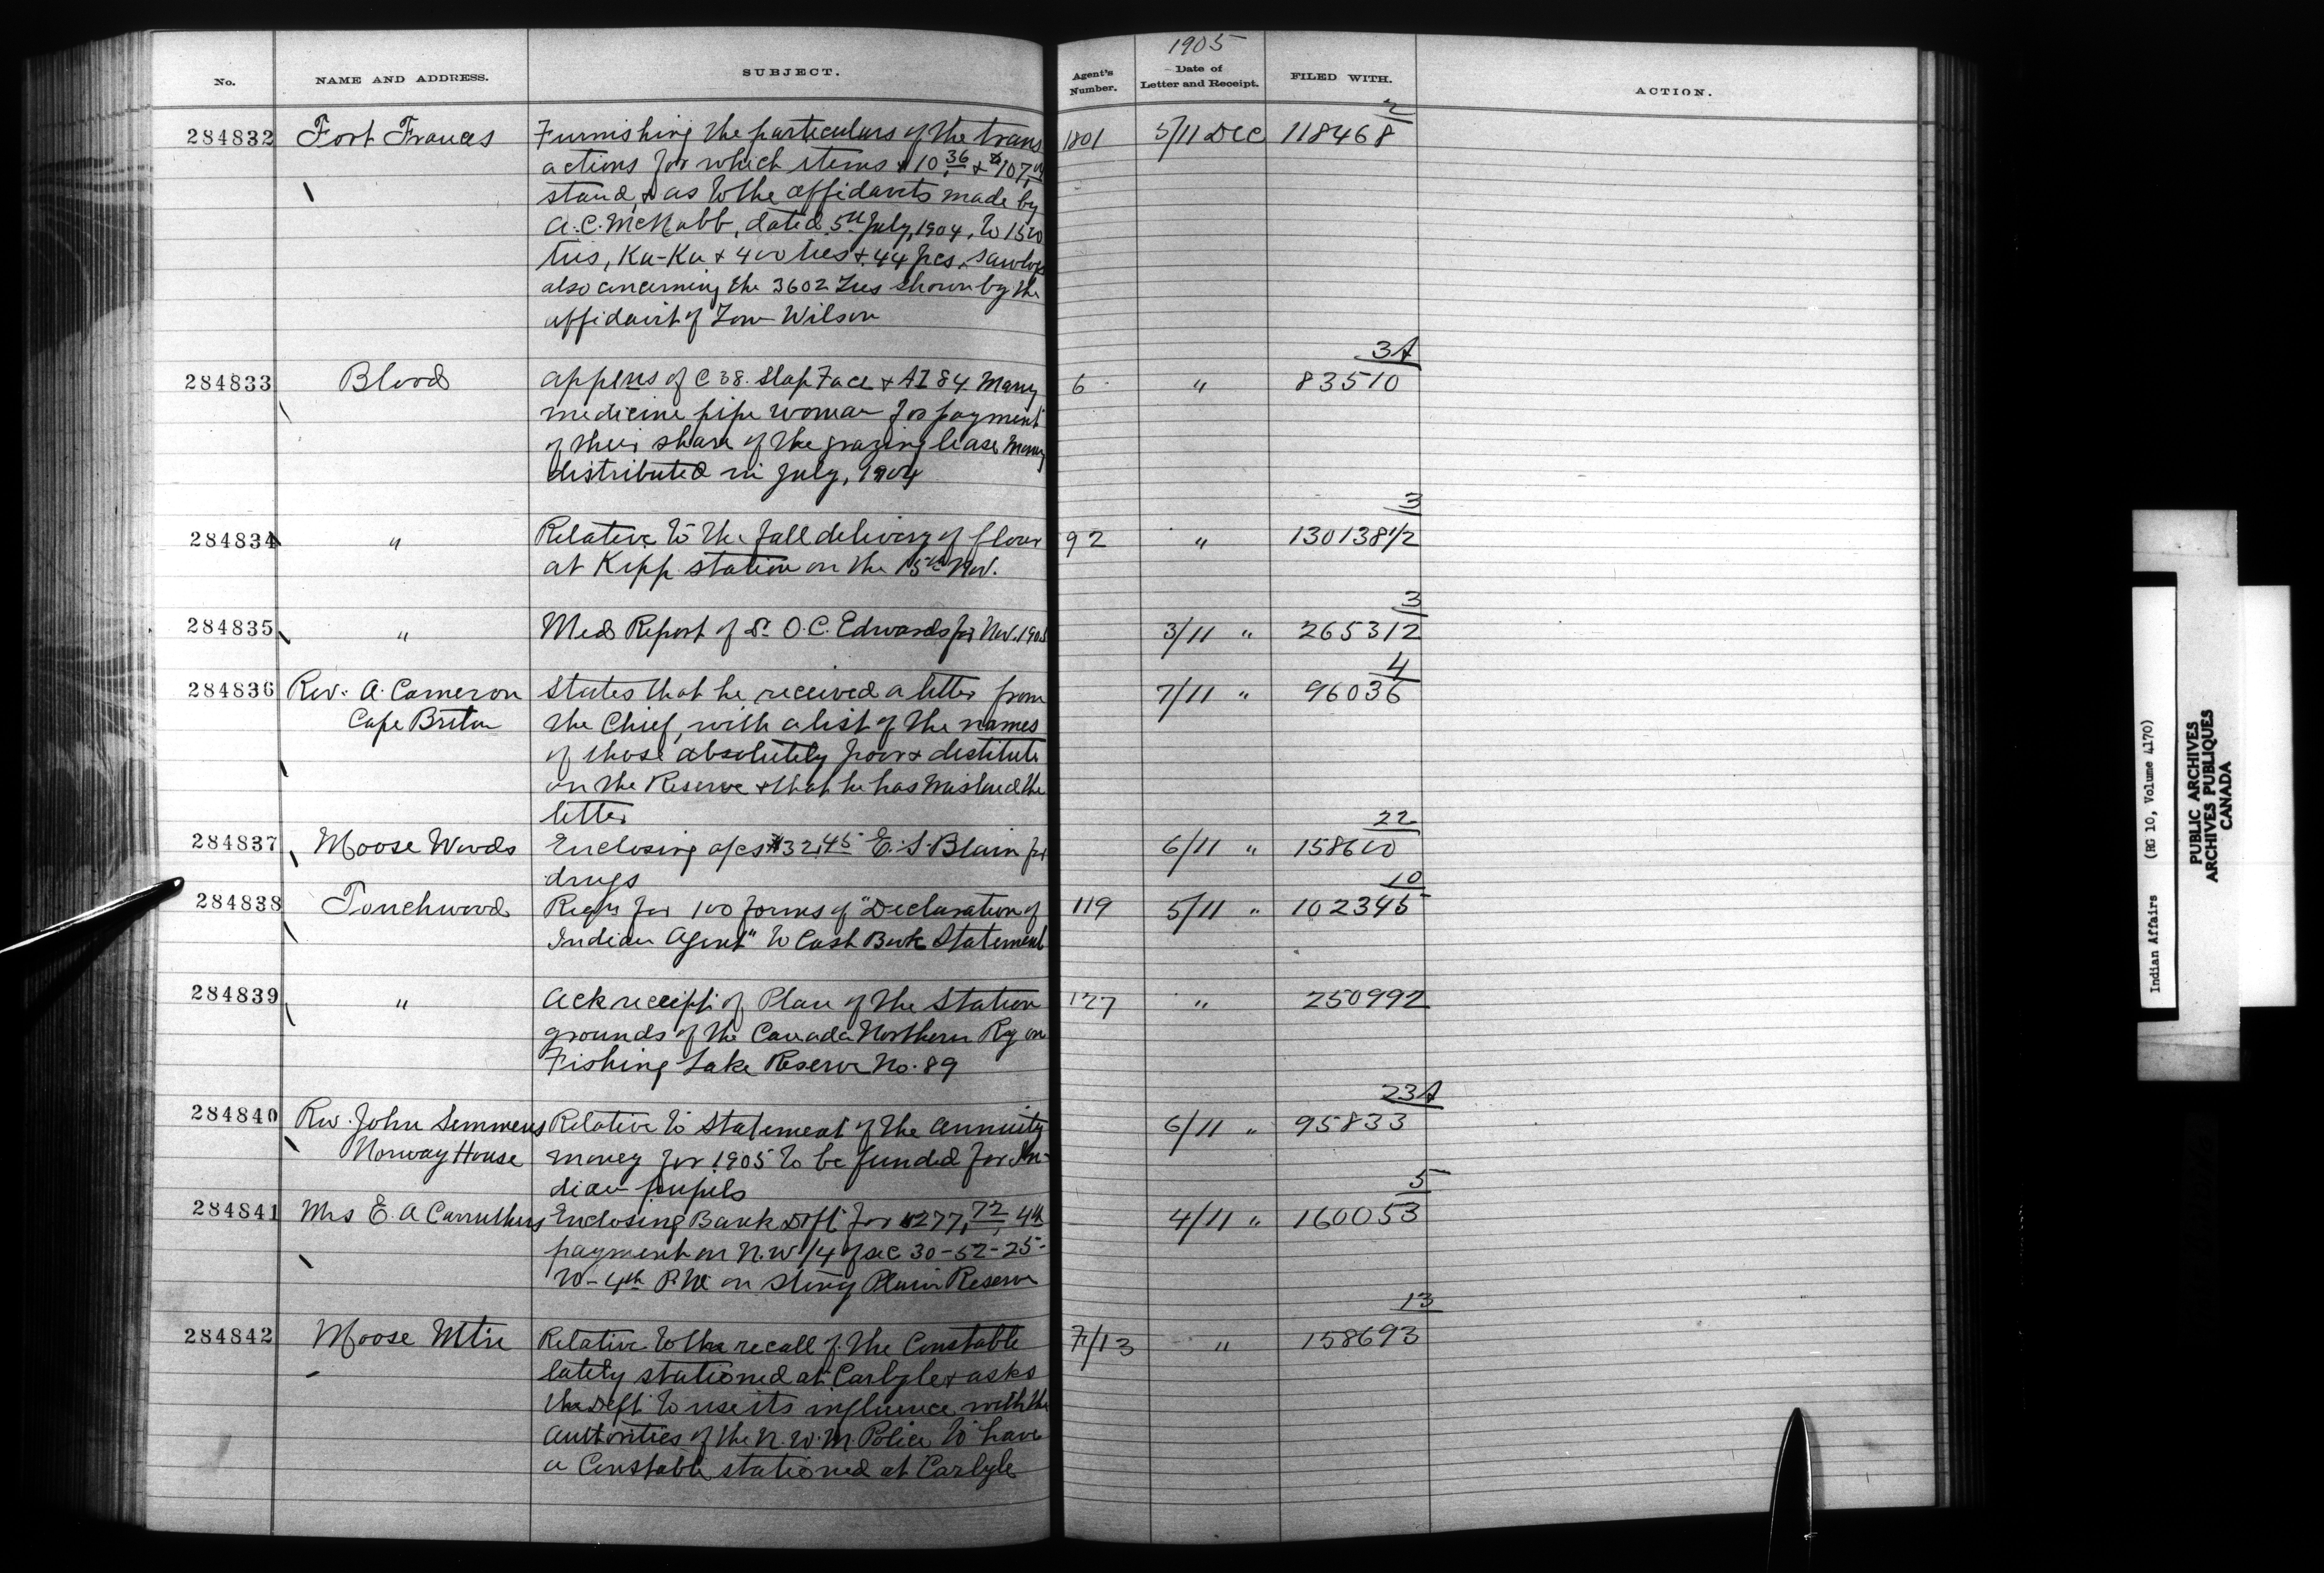 No. NAME AND ADDRESS. SUBJECT. Agent's Number. 1905 Date of Letter and Receipt. FILED WITH. ACTION.
2
284832 Fort Frances Furnishing the particulars of the trans 1801 5/11 Dec 118468
actions for which items $10.36 + $107.
stand, + as to the affidavits made by
A.C. McNabb, dated 5th July, 1904, to 1500
ties, Ka-Ka + 400 ties + 44 pcs. sawlogs
also concerning the 3602 ties shown by the
affidavit of Tom Wilson
3A
284833 Blood appens of C 38. Slap Face + AI 84 Many 6 " 83510
medicine pipe woman for payment
of their share of the grazing lease money
distributed in July, 1904
3
284834 " Relative to the fall delivery of flour 92 " 130138 1/2
at Kipp station on the 15th Nov.
3
284835 " Med Report of Dr. O.C. Edwards for Nov. 1905 3/11 " 265312
4
284836 Rev. A. Cameron States that he received a letter from 7/11 " 96036
Cape Breton the Chief, with a list of the names
of those absolutely poor + destitute
on the Reserve + that he has mislaid the
letter
22
284837 Moose Woods Enclosing a/cs $32.45 E.S. Blain for 6/11 " 158610
drugs
10
284838 Touchwood Reqn for 100 forms of "Declaration of 119 5/11 " 102345
Indian Agent" to Cash Book Statement
284839 " Ack receipt of Plan of the Station 127 " 250992
grounds of the Canada Northern Ry on
Fishing Lake Reserve No. 89
23A
284840 Rev. John Semmens Relative to Statement of the annuity 6/11 " 95833
Norway House money for 1905 to be funded for In-
dian pupils
5
284841 Mrs E. A Carruthers Enclosing Bank Dft for $277.72, 4th 4/11 " 160053
payment on N.W 1/4 of sec 30-52-25-
W-4th P.M on Stony Plain Reserve
13
284842 Moose Mtn Relative to the recall of the Constable 7/13 " 158693
lately stationed at Carlyle + asks
the Dept to use its influence with the
authorities of the N.W.M. Police to have
a Constable stationed at Carlyle
Indian Affairs (RG 10, Volume 4170)
PUBLIC ARCHIVES
ARCHIVES PUBLIQUES
CANADA